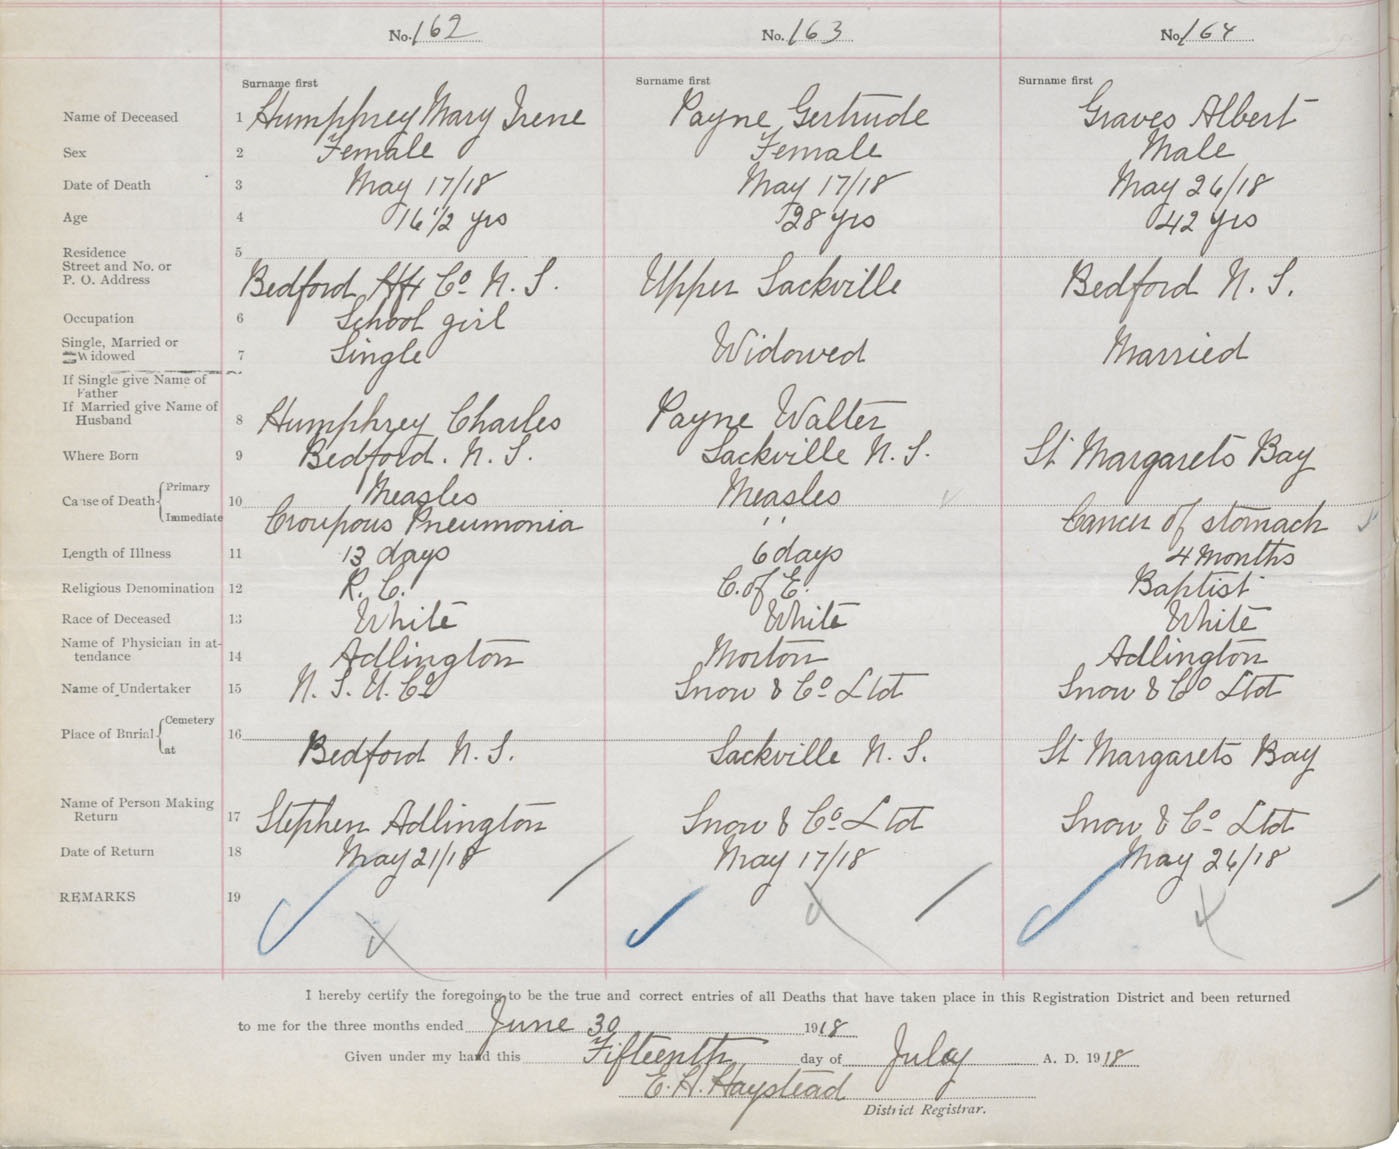 No. 162 No. 163 No. 164
Surname first Surname first Surname first
Name of Deceased 1 Humphrey Mary Irene Payne Gertrude Graves Albert
Sex 2 Female Female Male
Date of Death 3 May 17/18 May 17/18 May 26/18
Age 4 16 1/2 yrs 28 yrs 42 yrs
Residence 5
Street and No. or
P. O. Address Bedford Hfx Co. N. S. Upper Sackville Bedford N. S.
Occupation 6 School girl
Single, Married or
Widowed 7 Single Widowed Married
If Single give Name of
Father
If Married give Name of
Husband 8 Humphrey Charles Payne Walter
Where Born 9 Bedford. N. S. Sackville N. S. St Margarets Bay
Cause of Death Primary 10 Measles Measles
Immediate Croupous Pneumonia " Cancer of stomach
Length of Illness 11 13 days 6 days 4 Months
Religious Denomination 12 R. C. C. of E. Baptist
Race of Deceased 13 White White White
Name of Physician in at-
tendance 14 Adlington Morton Adlington
Name of Undertaker 15 N. S. U. Co Snow & Co. Ltd Snow & Co Ltd
Place of Burial Cemetery 16
at Bedford N. S. Sackville N. S. St Margarets Bay
Name of Person Making
Return 17 Stephen Adlington Snow & Co. Ltd Snow & Co. Ltd
Date of Return 18 May 21/18 May 17/18 May 26/18
REMARKS 19
I hereby certify the foregoing to be the true and correct entries of all Deaths that have taken place in this Registration District and been returned
to me for the three months ended June 30 1918
Given under my hand this Fifteenth day of July A. D. 1918
E. H. Haystead
District Registrar.